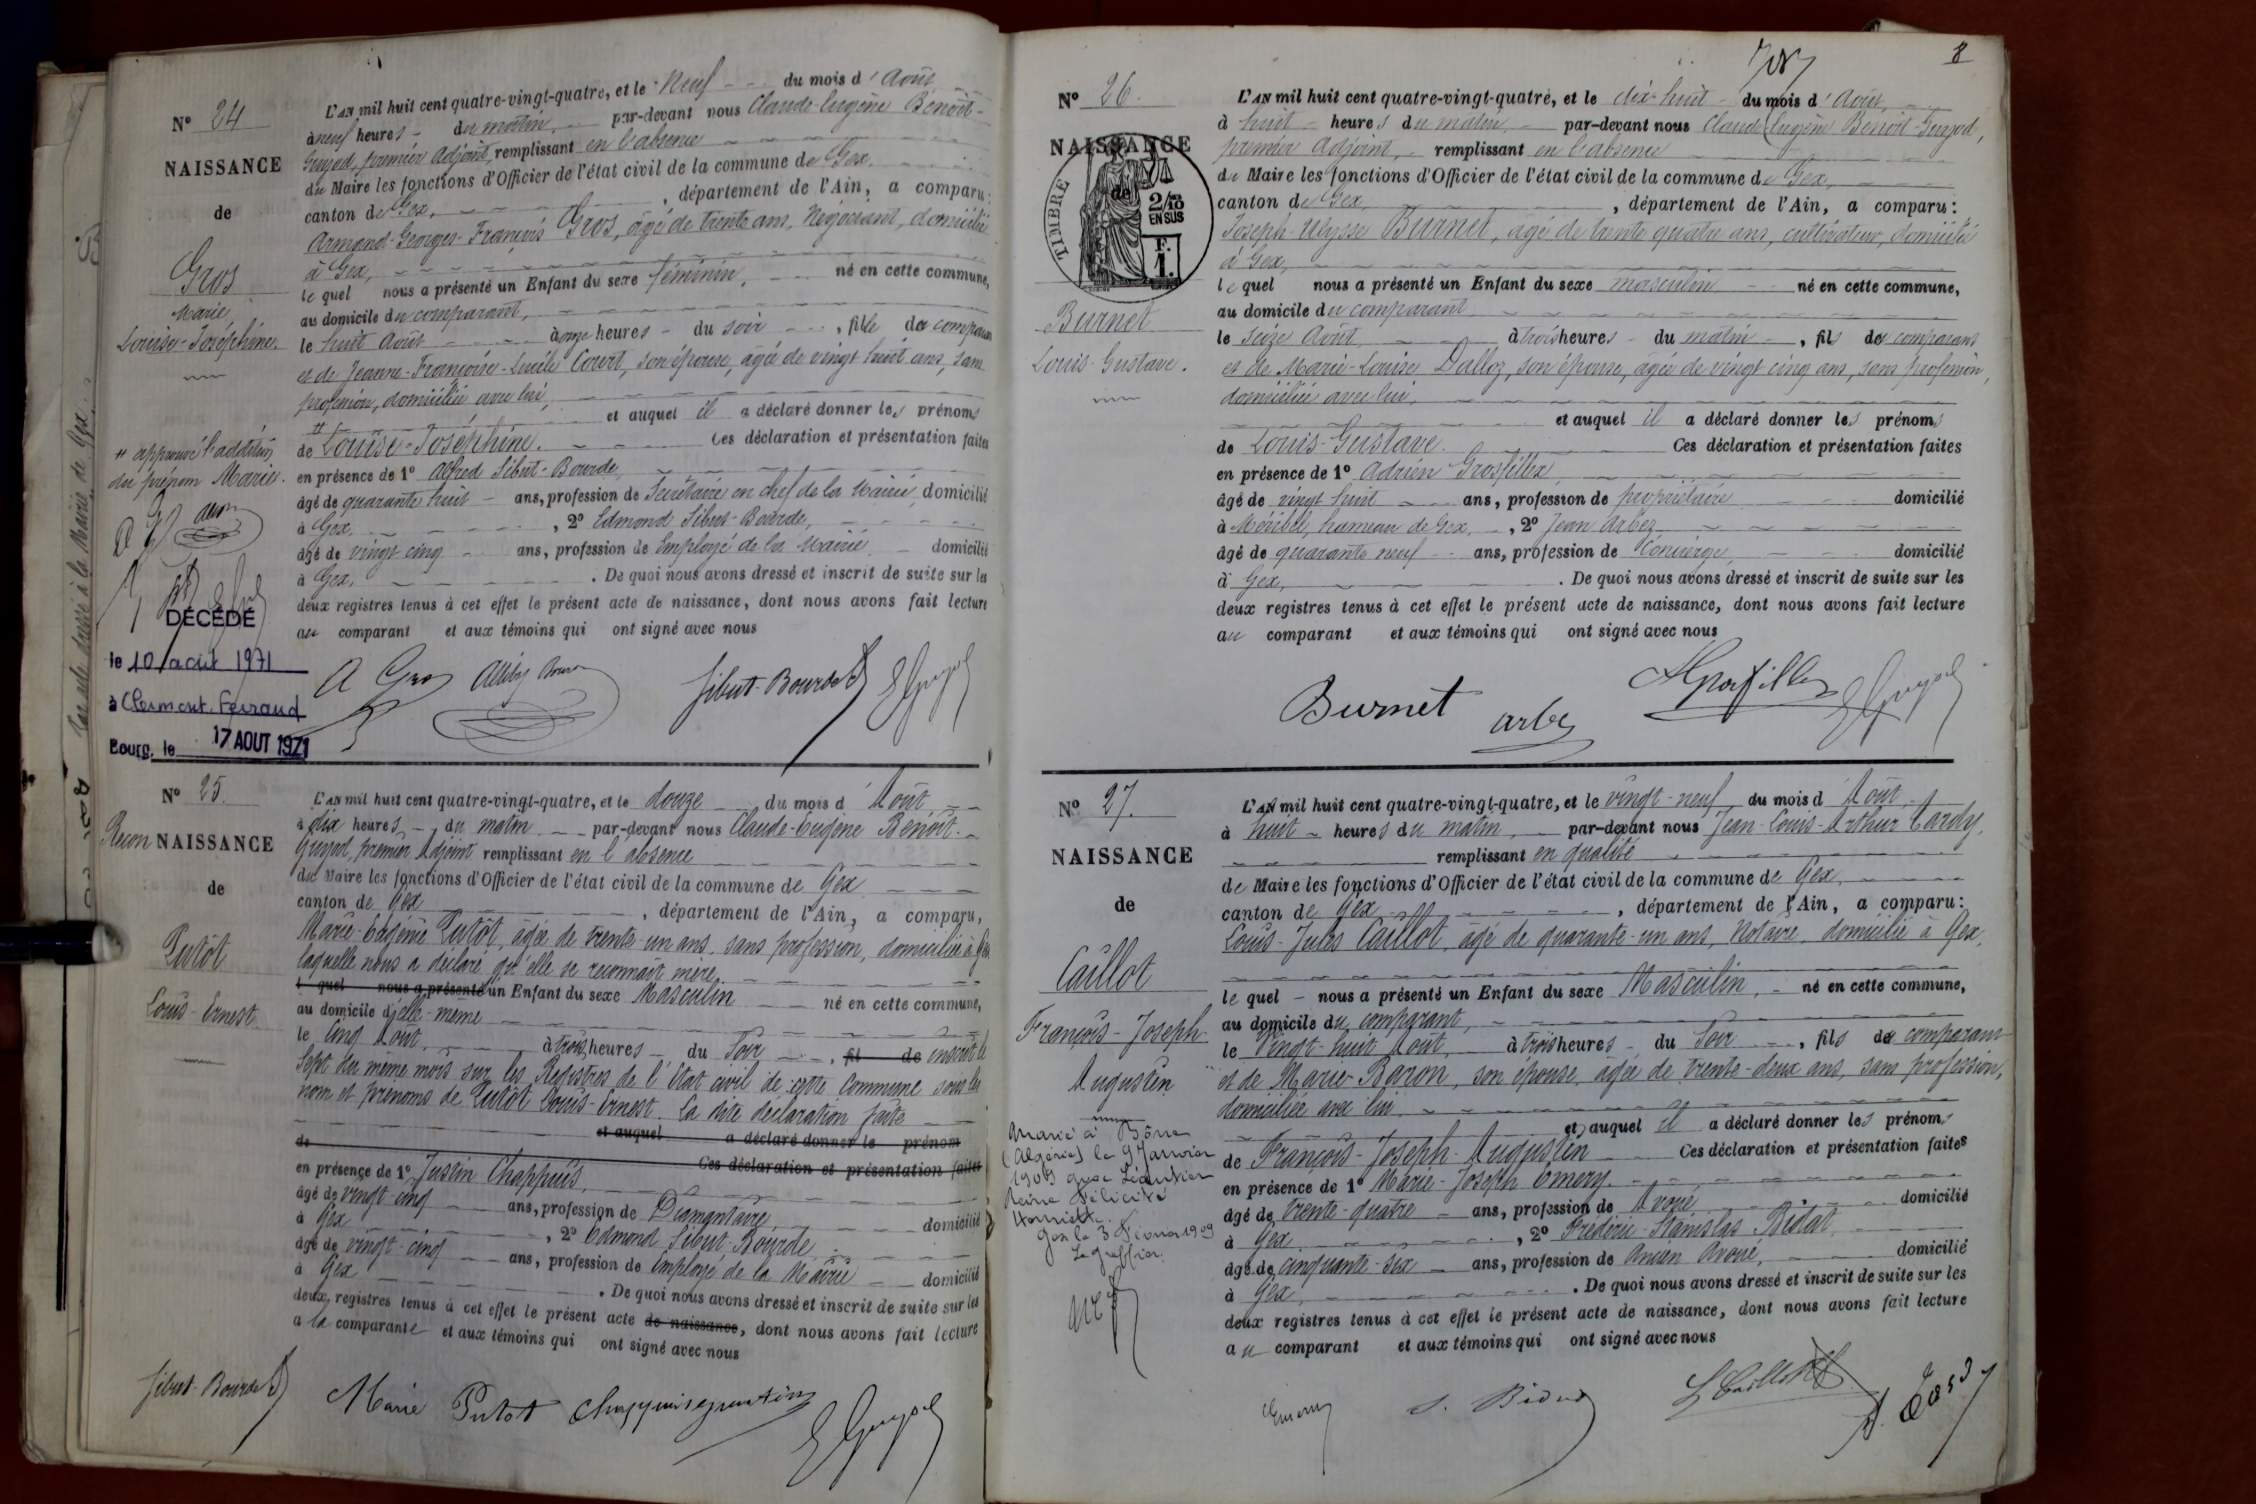 Nº 24
NAISSANCE
de
Gros
Marie
Louise-Joséphine.
# approuvé l'addition
du prénom Marie.
DÉCÉDÉ
le 10 août 1971
à Clermont-Ferrand
Bourg, le 17 AOUT 1971
L'AN mil huit cent quatre-vingt-quatre, et le Neuf du mois d'Août
à neuf heures du matin, par-devant nous Claude-Eugène Benoît-
Guyod, premier Adjoint, remplissant en l'absence
du Maire les fonctions d'Officier de l'état civil de la commune de Gex,
canton de Gex, département de l'Ain, a comparu:
Armand-Georges-François Gros, âgé de trente ans, Négociant, domicilié
à Gex,
lequel nous a présenté un Enfant du sexe féminin, né en cette commune,
au domicile du comparant,
le huit Août à onze heures du soir, fille du comparant
et de Jeanne-Françoise-Lucile Court, son épouse, âgée de vingt huit ans, sans
profession, domiciliée avec lui,
et auquel il a déclaré donner les prénoms
# de Louise-Joséphine. Ces déclaration et présentation faites
en présence de 1º Alfred Sibut-Bourde,
âgé de quarante huit ans, profession de Secrétaire en chef de la Mairie, domicilié
à Gex, 2º Edmond Sibut-Bourde,
âgé de vingt cinq ans, profession de Employé de la Mairie, domicilié
à Gex. De quoi nous avons dressé et inscrit de suite sur les
deux registres tenus à cet effet le présent acte de naissance, dont nous avons fait lecture
au comparant et aux témoins qui ont signé avec nous
A Gros Sibut-Bourde E Guyod
Nº 25.
Recon NAISSANCE
de
Putôt
Louis-Ernest
L'AN mil huit cent quatre-vingt-quatre, et le douze du mois d'Août
à dix heures du matin par-devant nous Claude-Eugène Benoît-
Guyod, premier Adjoint remplissant en l'absence
du Maire les fonctions d'Officier de l'état civil de la commune de Gex
canton de Gex, département de l'Ain, a comparu,
Marie-Eugénie Putôt, âgée de trente-un ans, sans profession, domiciliée à Gex
laquelle nous a déclaré qu'elle se reconnaît mère
l quel nous a présenté un Enfant du sexe Masculin né en cette commune,
au domicile d'elle-même
le Cinq Août, à trois heures du Soir, fil de inscrit le
Sept du même mois sur les Registres de l'Etat civil de cette commune sous les
nom et prénoms de Putôt Louis-Ernest. La dite déclaration faite
et auquel a déclaré donner le prénom
de Ces déclaration et présentation faites
en présence de 1º Justin Chappuis,
âgé de vingt-cinq ans, profession de Diamantaire, domicilié
à Gex, 2º Edmond Sibut-Bourde
âgé de vingt-cinq ans, profession de Employé de la Mairie domicilié
à Gex. De quoi nous avons dressé et inscrit de suite sur les
deux registres tenus à cet effet le présent acte de naissance, dont nous avons fait lecture
a la comparante et aux témoins qui ont signé avec nous
Sibut-Bourde Marie Putot E Guyod
8
Nº 26.
NAISSANCE
de
TIMBRE
2/10
EN SUS
F.
1.
Burnet
Louis-Gustave.
L'AN mil huit cent quatre-vingt-quatre, et le dix-huit du mois d'Août,
à huit heures du matin, par-devant nous Claude Eugène Benoît-Guyod,
premier Adjoint, remplissant en l'absence
du Maire les fonctions d'Officier de l'état civil de la commune de Gex,
canton de Gex, département de l'Ain, a comparu:
Joseph-Ulysse Burnet, âgé de trente quatre ans, cultivateur, domicilié
à Gex,
lequel nous a présenté un Enfant du sexe masculin né en cette commune,
au domicile du comparant
le seize Août à trois heures du matin, fils du comparant
et de Marie-Louise Dalloz, son épouse, âgée de vingt cinq ans, sans profession,
domiciliée avec lui,
et auquel il a déclaré donner les prénoms
de Louis-Gustave. Ces déclaration et présentation faites
en présence de 1º Adrien Grosfillex,
âgé de vingt huit ans, profession de propriétaire domicilié
à Méribel, hameau de Gex, 2º Jean Arbez
âgé de quarante neuf ans, profession de Concierge, domicilié
à Gex, De quoi nous avons dressé et inscrit de suite sur les
deux registres tenus à cet effet le présent acte de naissance, dont nous avons fait lecture
au comparant et aux témoins qui ont signé avec nous
Burnet Arbez AGrosfillex E Guyod
Nº 27.
NAISSANCE
de
Caillot
François-Joseph-
Augustin
Marié à Bône
(Algérie) le 9 Janvier
1909 avec Léautier
Reine Félicité
Henriette.
Gex le 3 Février 1909
Le greffier
L'AN mil huit cent quatre-vingt-quatre, et le vingt-neuf du mois d'Août
à huit heures du matin, par-devant nous Jean-Louis-Arthur Tardy,
remplissant en qualité
de Maire les fonctions d'Officier de l'état civil de la commune de Gex,
canton de Gex, département de l'Ain, a comparu:
Louis-Jules Caillot, âgé de quarante-un ans, Notaire, domicilié à Gex,
lequel nous a présenté un Enfant du sexe Masculin, né en cette commune,
au domicile du comparant,
le Vingt-huit Août, à trois heures du Soir, fils du comparant
et de Marie Baron, son épouse, âgée de trente-deux ans, sans profession,
domiciliée avec lui
et auquel il a déclaré donner les prénoms
de François-Joseph-Augustin Ces déclaration et présentation faites
en présence de 1º Marie-Joseph Emery.
âgé de trente-quatre ans, profession de Avoué, domicilié
à Gex, 2º Frédéric-Stanislas Bidat
âgé de cinquante-six ans, profession de Ancien Avoué, domicilié
à Gex, De quoi nous avons dressé et inscrit de suite sur les
deux registres tenus à cet effet le présent acte de naissance, dont nous avons fait lecture
au comparant et aux témoins qui ont signé avec nous
Emery S. Bidat L Caillot A. Tardy